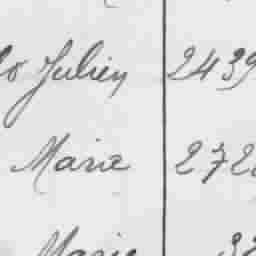 Julien 2439
Marie 272
Marie 32